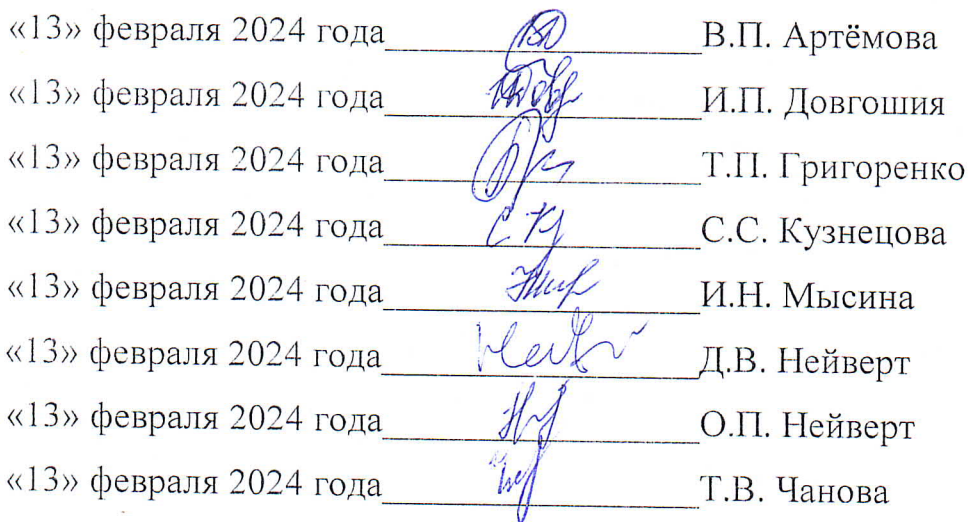 «13» февраля 2024 года В.П. Артёмова
«13» февраля 2024 года И.П. Довгошия
«13» февраля 2024 года Т.П. Григоренко
«13» февраля 2024 года С.С. Кузнецова
«13» февраля 2024 года И.Н. Мысина
«13» февраля 2024 года Д.В. Нейверт
«13» февраля 2024 года О.П. Нейверт
«13» февраля 2024 года Т.В. Чанова